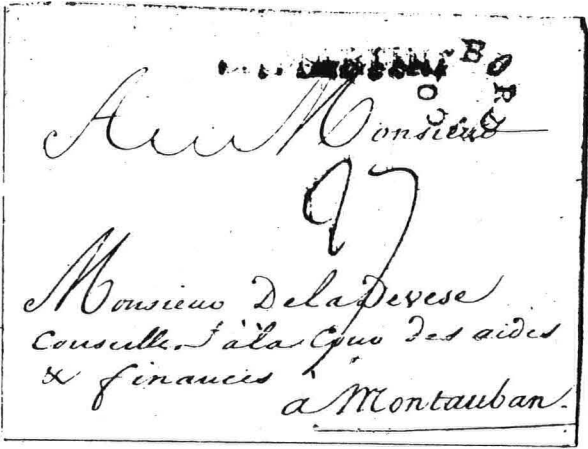 A Monsieur
27
Monsieur Deladevese
Conseiller à la Cour des aides
& finances
a Montauban.